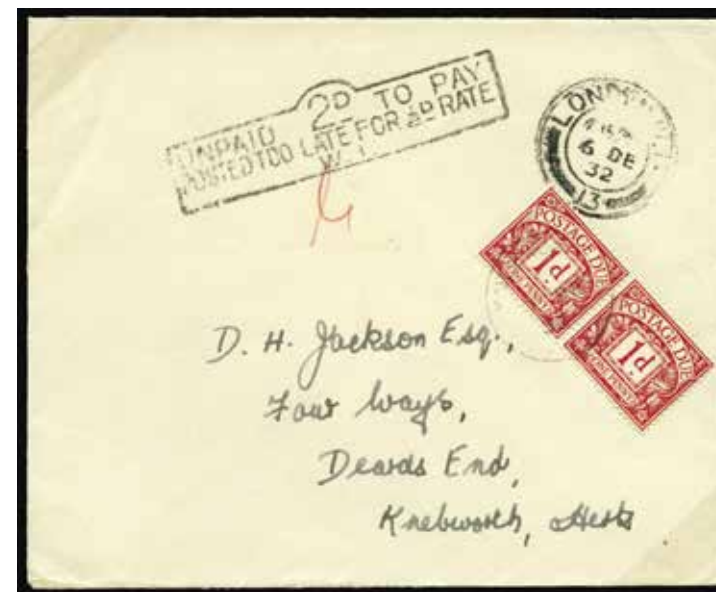 2D TO PAY
UNPAID
POSTED TOO LATE FOR ½D RATE
W.1
LONDON
6 DE
32
13
POSTAGE DUE
1d
ONE PENNY
POSTAGE DUE
1d
ONE PENNY
D. H. Jackson Esq.,
Four Ways,
Deards End,
Knebworth, Herts